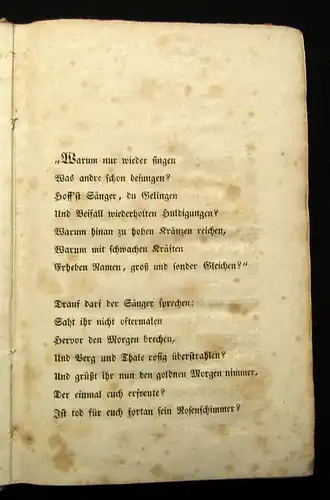 „Warum nur wieder singen
Was andre schon besungen?
Hoff'st Sänger, du Gelingen
Und Beifall wiederholten Huldigungen?
Warum hinan zu hohen Kränzen reichen,
Warum mit schwachen Kräften
Erheben Namen, groß und sonder Gleichen?“
Drauf darf der Sänger sprechen:
Saht ihr nicht oftermalen
Hervor den Morgen brechen,
Und Berg und Thale rosig überstrahlen?
Und grüßt ihr nun den goldnen Morgen nimmer,
Der einmal euch erfreute?
Ist tod für euch fortan sein Rosenschimmer?